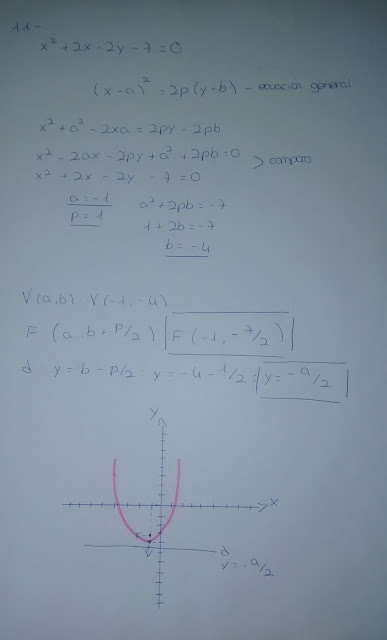 11-
x² + 2x - 2y - 7 = 0
(x-a)² = 2p(y-b) - ecuación general
x² + a² - 2xa = 2py - 2pb
x² - 2ax - 2py + a² + 2pb = 0
x² + 2x - 2y - 7 = 0 > comparo
a = -1 a² + 2pb = -7
p = 1 1 + 2b = -7
b = -4
V(a,b) V(-1,-4)
F (a, b + P/2) F(-1, -7/2)
d y = b - P/2 y = -4 - 1/2 y = -9/2
y
x
F
V
d
y = -9/2